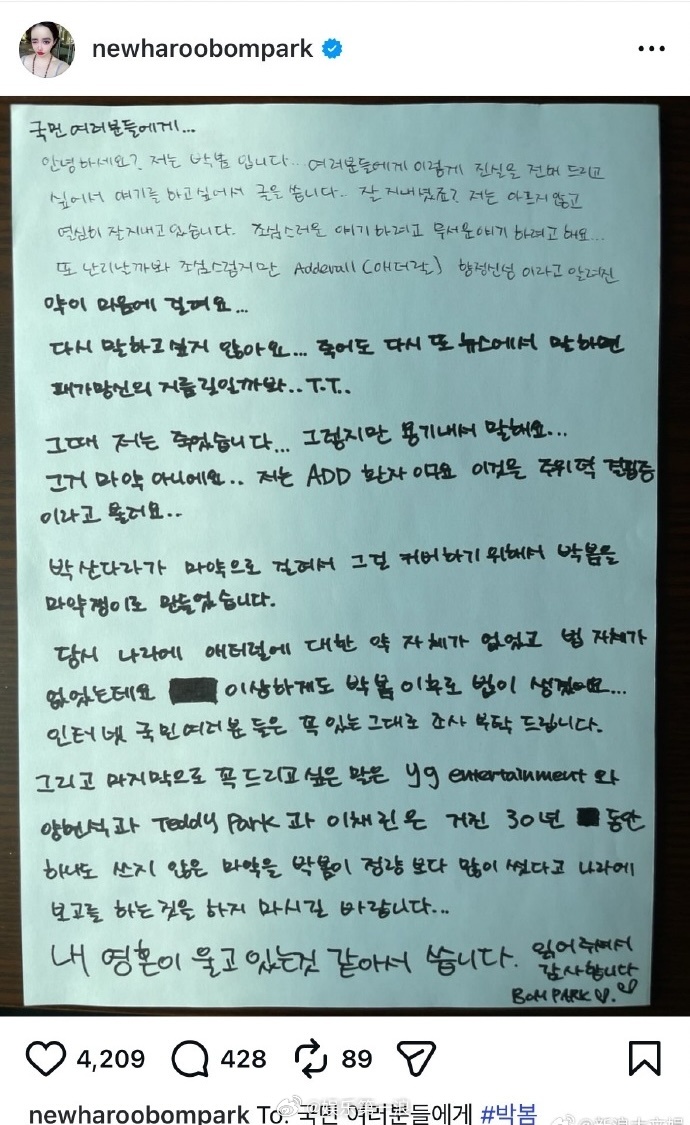 newharoobompark
국민 여러분들에게...
안녕하세요? 저는 박봄 입니다... 여러분들에게 이렇게 진실을 전버 드리고
싶어서 얘기를 하고싶어서 글을 씁니다.. 잘 지내셨죠? 저는 아프지 않고
열심히 잘지내고 있습니다. 조심스러운 얘기 하려고 무서운얘기 하려고 해요...
또 난리날까봐 조심스럽지만 Adderall (애더럴) 향정신성 이라고 알려진
약이 마음에 걸려요...
다시 말하고 싶지 않아요... 죽어도 다시 또 뉴스에서 말하면
패가망신의 지름길일까봐..T.T..
그때 저는 죽었습니다... 그렇지만 용기내서 말해요...
그거 마약 아니에요.. 저는 ADD 환자 이구요 이것은 주위력 결핍증
이라고 불려요..
박산다라가 마약으로 걸려서 그걸 커버하기 위해서 박봄을
마약쟁이로 만들었습니다.
당시 나라에 애터럴에 대한 약 자체가 없었고 법 자체가
없었는데요 이상하게도 박봄 이후로 법이 생겼어요...
인터넷 국민여러분 들은 꼭 있는 그대로 조사 부탁 드립니다.
그리고 마지막으로 꼭 드리고 싶은 말은 yg entertainment 와
양현석과 Teddy Park 과 이채린은 거진 30년 동안
하나도 쓰지 않은 마약을 박봄이 정량 보다 많이 썼다고 나라에
보고를 하는것을 하지 마시길 바랍니다...
내 영혼이 울고 있는것 같아서 씁니다. 읽어 주셔서
감사합니다
BOM PARK ♡.♡
4,209 428 89
newharoobompark To. 국민 여러분들에게 #박봄